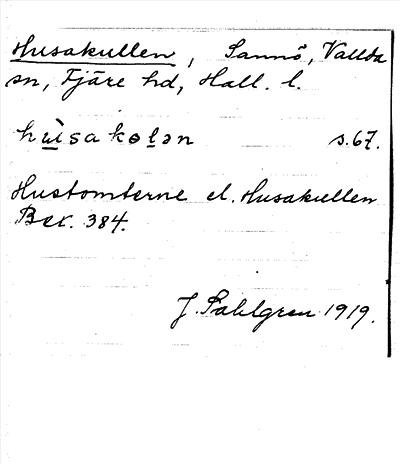 Husakullen, Sannö, Vallda
sn, Fjäre hd, Hall. l.
hùsakolən s.67.
Hustomterne el. Husakullen
Bex. 384.
J. Sahlgren 1919.